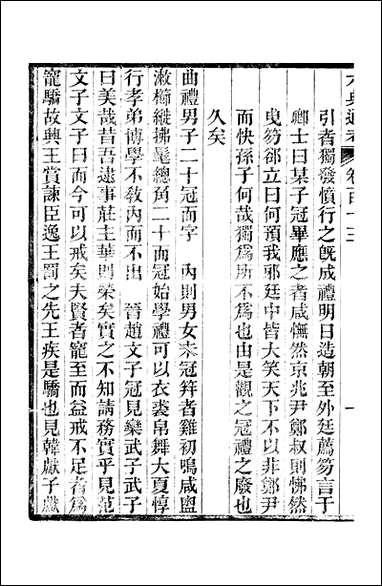 六典通考 卷百十三 一
引者獨發憤行之既成禮明日造朝至外廷薦笏言于
卿士曰某子冠畢應之者咸憮然京兆尹鄭叔則怫然
曳笏卻立曰何預我邪廷中皆大笑天下不以非鄭尹
而快孫子何哉獨爲所不爲也由是觀之冠禮之廢也
久矣
曲禮男子二十冠而字 內則男女未冠笄者雞初鳴咸盥
漱櫛縰拂髦總角二十而冠始學禮可以衣裘帛舞大夏惇
行孝弟博學不敎內而不出 晉趙文子冠見欒武子武子
曰美哉昔吾逮事莊主華則榮矣實之不知請務實乎見范
文子文子曰而今可以戒矣夫賢者寵至而益戒不足者爲
寵驕故興王賞諫臣逸王罰之先王疾是驕也見韓獻子獻